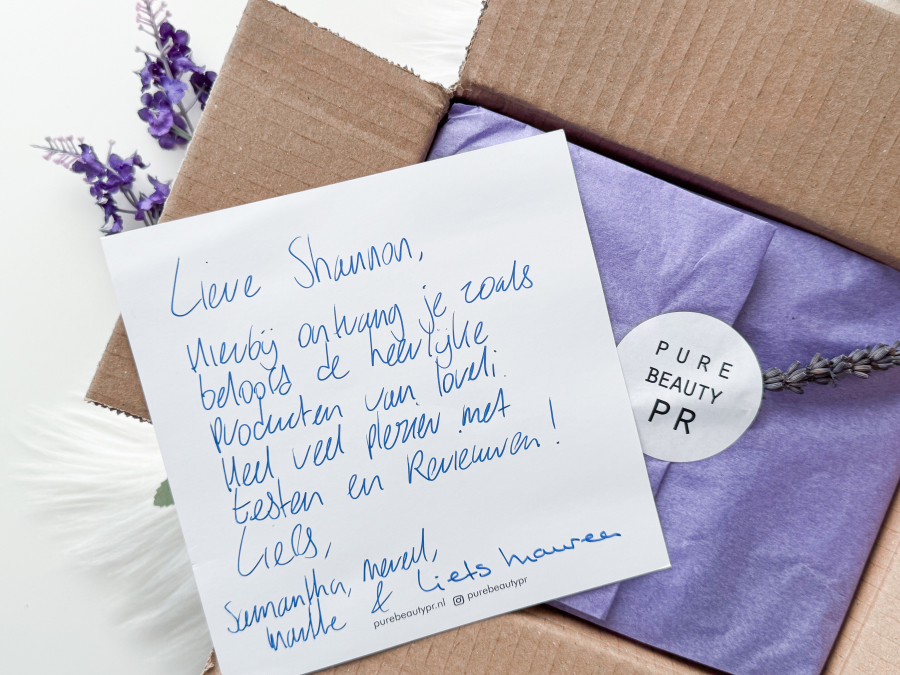 Lieve Shannon,
Hierbij ontvang je zoals
beloofd de heerlijke
producten van loveli.
Heel veel plezier met
testen en Reviewen!
Liefs,
Samantha, Merel,
& Liefs Maureen
purebeautypr.nl purebeautypr
PURE
BEAUTY
PR